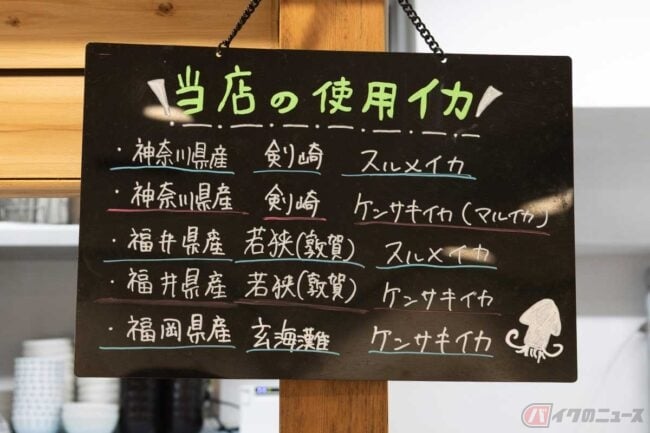 当店の使用イカ
・神奈川県産 剣崎 スルメイカ
・神奈川県産 剣崎 ケンサキイカ(マルイカ)
・福井県産 若狭(敦賀) スルメイカ
・福井県産 若狭(敦賀) ケンサキイカ
・福岡県産 玄海灘 ケンサキイカ
バイクのニュース